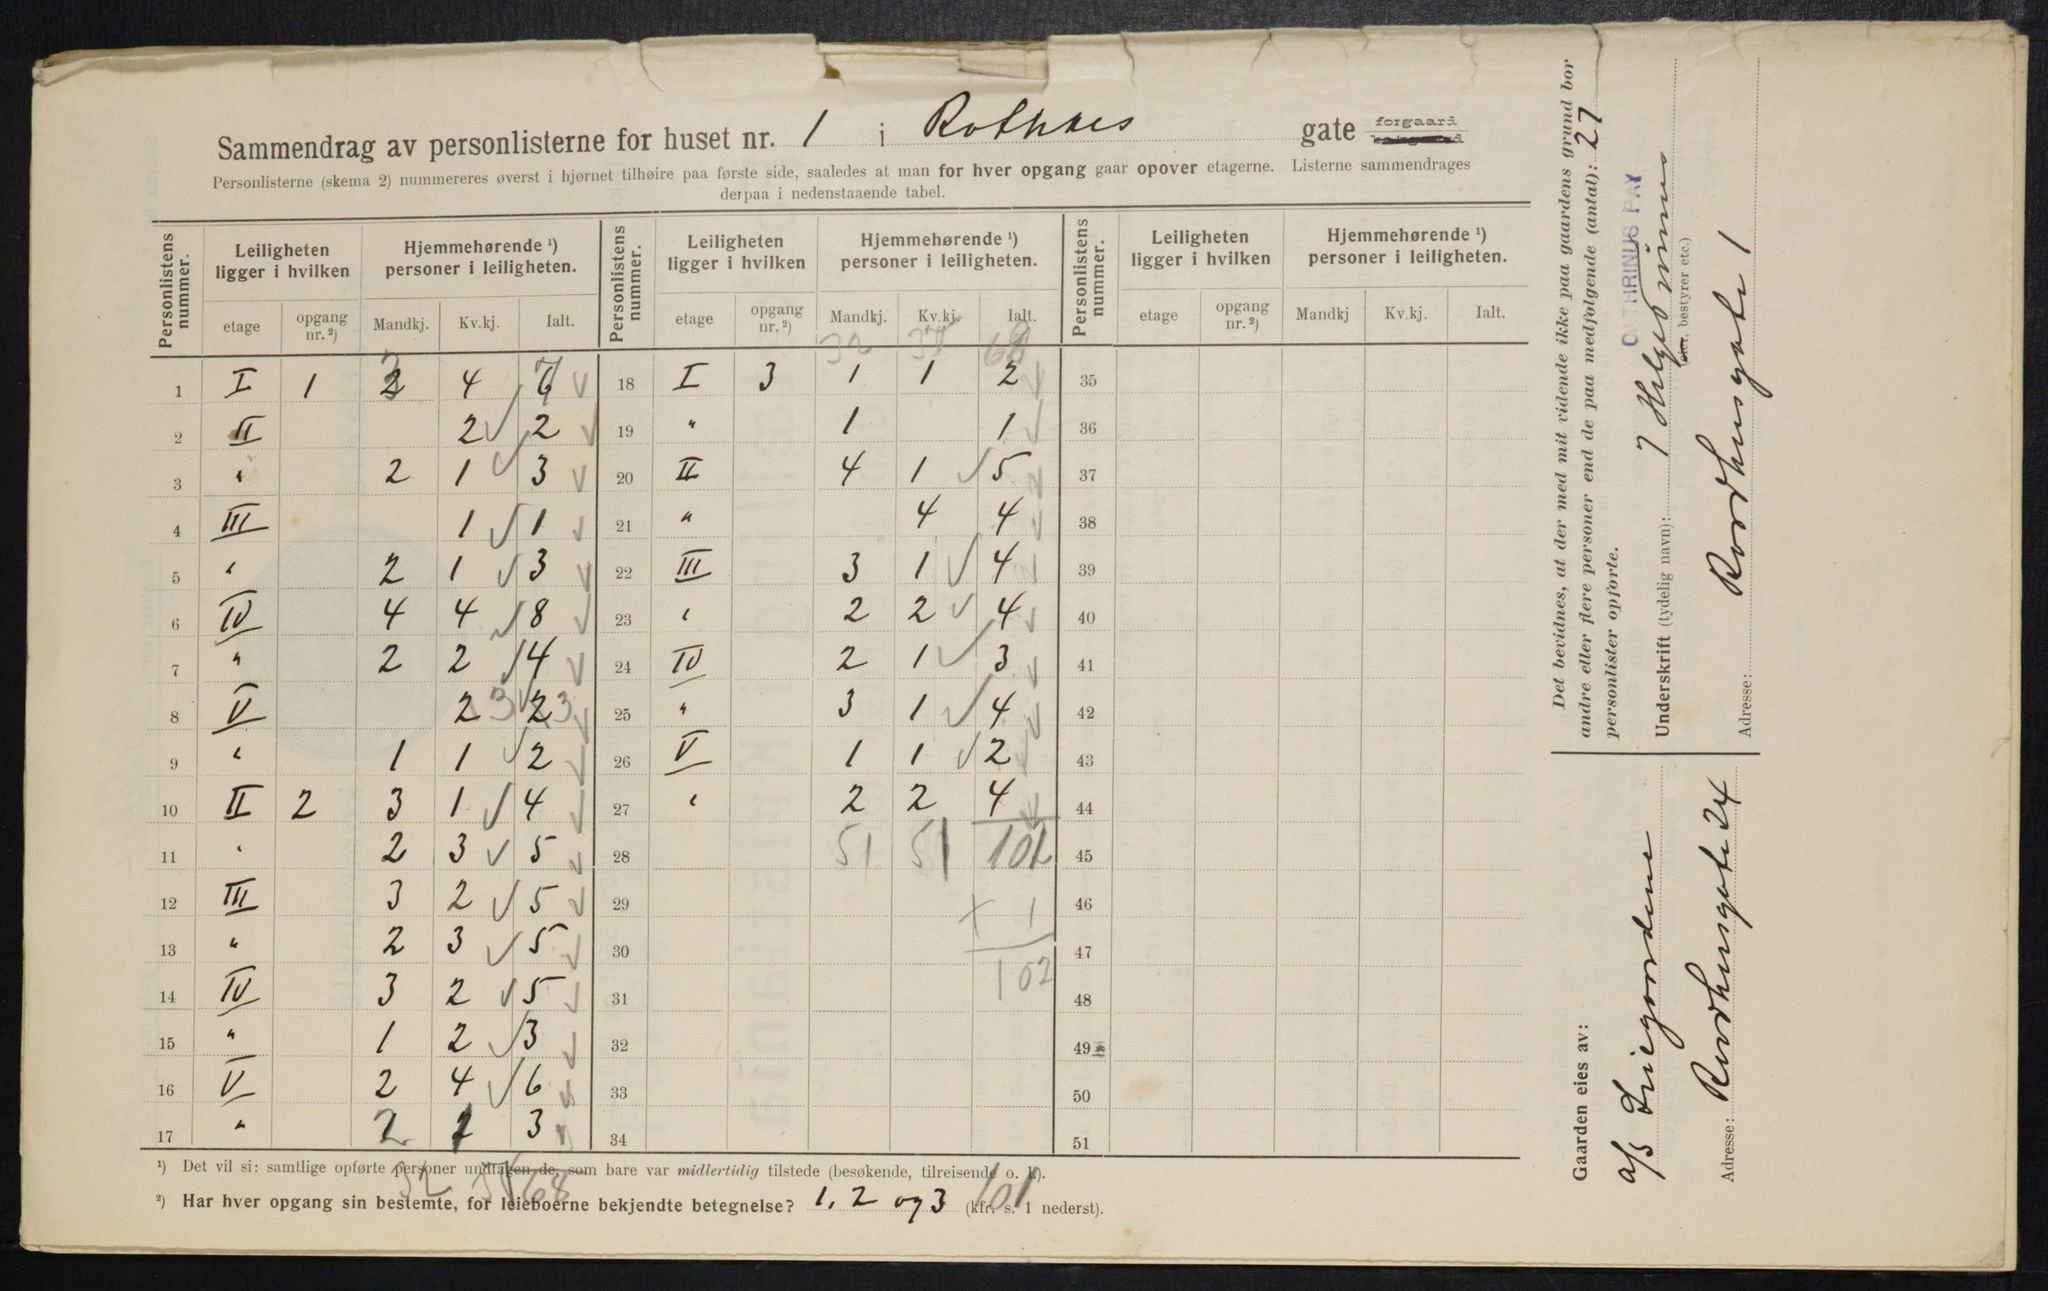 Sammendrag av personlisterne for huset nr. 1 i Rothhus gate forgaard
Personlisterne (skema 2) nummereres øverst i hjørnet tilhøire paa første side, saaledes at man for hver opgang gaar opover etagerne. Listerne sammendrages
derpaa i nedenstaaende tabel.
Personlistens nummer. Leiligheten ligger i hvilken Hjemmehørende ¹) personer i leiligheten. Personlistens nummer. Leiligheten ligger i hvilken Hjemmehørende ¹) personer i leiligheten. Personlistens nummer. Leiligheten ligger i hvilken Hjemmehørende ¹) personer i leiligheten.
etage opgang nr. ²) Mandkj. Kv.kj. Ialt. etage opgang nr. ²) Mandkj. Kv.kj. Ialt. etage opgang nr. ²) Mandkj Kv.kj. Ialt.
1 I 1 4 7 18 I 3 1 1 2 35
2 II 2 2 19 " 1 1 36
3 " 2 1 3 20 II 4 1 5 37
4 III 1 1 21 " 4 4 38
5 " 2 1 3 22 III 3 1 4 39
6 IV 4 4 8 23 " 2 2 4 40
7 " 2 2 4 24 IV 2 1 3 41
8 V 2 3 2 3 25 " 3 1 4 42
9 " 1 1 2 26 V 1 1 2 43
10 II 2 3 1 4 27 " 2 2 4 44
11 " 2 3 5 28 51 51 102 45
12 III 3 2 5 29 + 1 46
13 " 2 3 5 30 47
14 IV 3 2 5 31 102 48
15 " 1 2 3 32 49
16 V 2 4 6 33 50
17 " 2 1 3 34 51
¹) Det vil si: samtlige opførte personer undtagen de, som bare var midlertidig tilstede (besøkende, tilreisende o. l.).
32 68 101
²) Har hver opgang sin bestemte, for leieboerne bekjendte betegnelse? 1, 2 og 3 (kfr. s. 1 nederst).
Det bevidnes, at der med mit vidende ikke paa gaardens grund bor
andre eller flere personer end de paa medfølgende (antal): 27
personlister opførte.
Underskrift (tydelig navn):
bestyrer etc.)
Adresse: Raadhusgate 1
Gaarden eies av:
Adresse: Raadhusgate 24